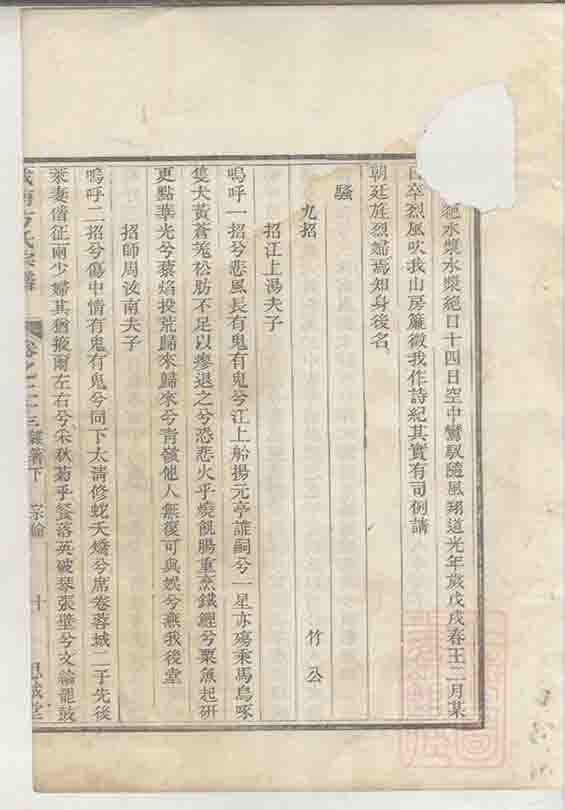 絕水漿水漿絕日十四日空中鸞馭隨風翔道光年歲戊戌春王二月某
卒烈風吹我山房簾微我作詩紀其實有司例請
朝廷旌烈婦焉知身後名
騷
九招 竹公
招江上湯夫子
嗚呼一招兮悲風長有鬼有鬼兮江上船揚元亭誰嗣兮一星亦殤乘馬烏啄
隻犬黃蒼蒐松肪不足以療退之兮恐悲火乎燒飢腸重烹鐵經兮粟魚起研
更點華光兮蔡焰投荒歸來歸來兮青嶺他人無復可與娛兮燕我後堂
招師周汝南夫子
嗚呼二招兮傷中情有鬼有鬼兮同下太清修蛇天矯兮席卷蓉城二子先後
萊妻偕征兩少婦其猶掖爾左右兮宋秋菊乎餐落英破琴張壁兮文論龍鼓
方氏宗譜 卷之二十三雜著下 宗倫 十 思誠堂